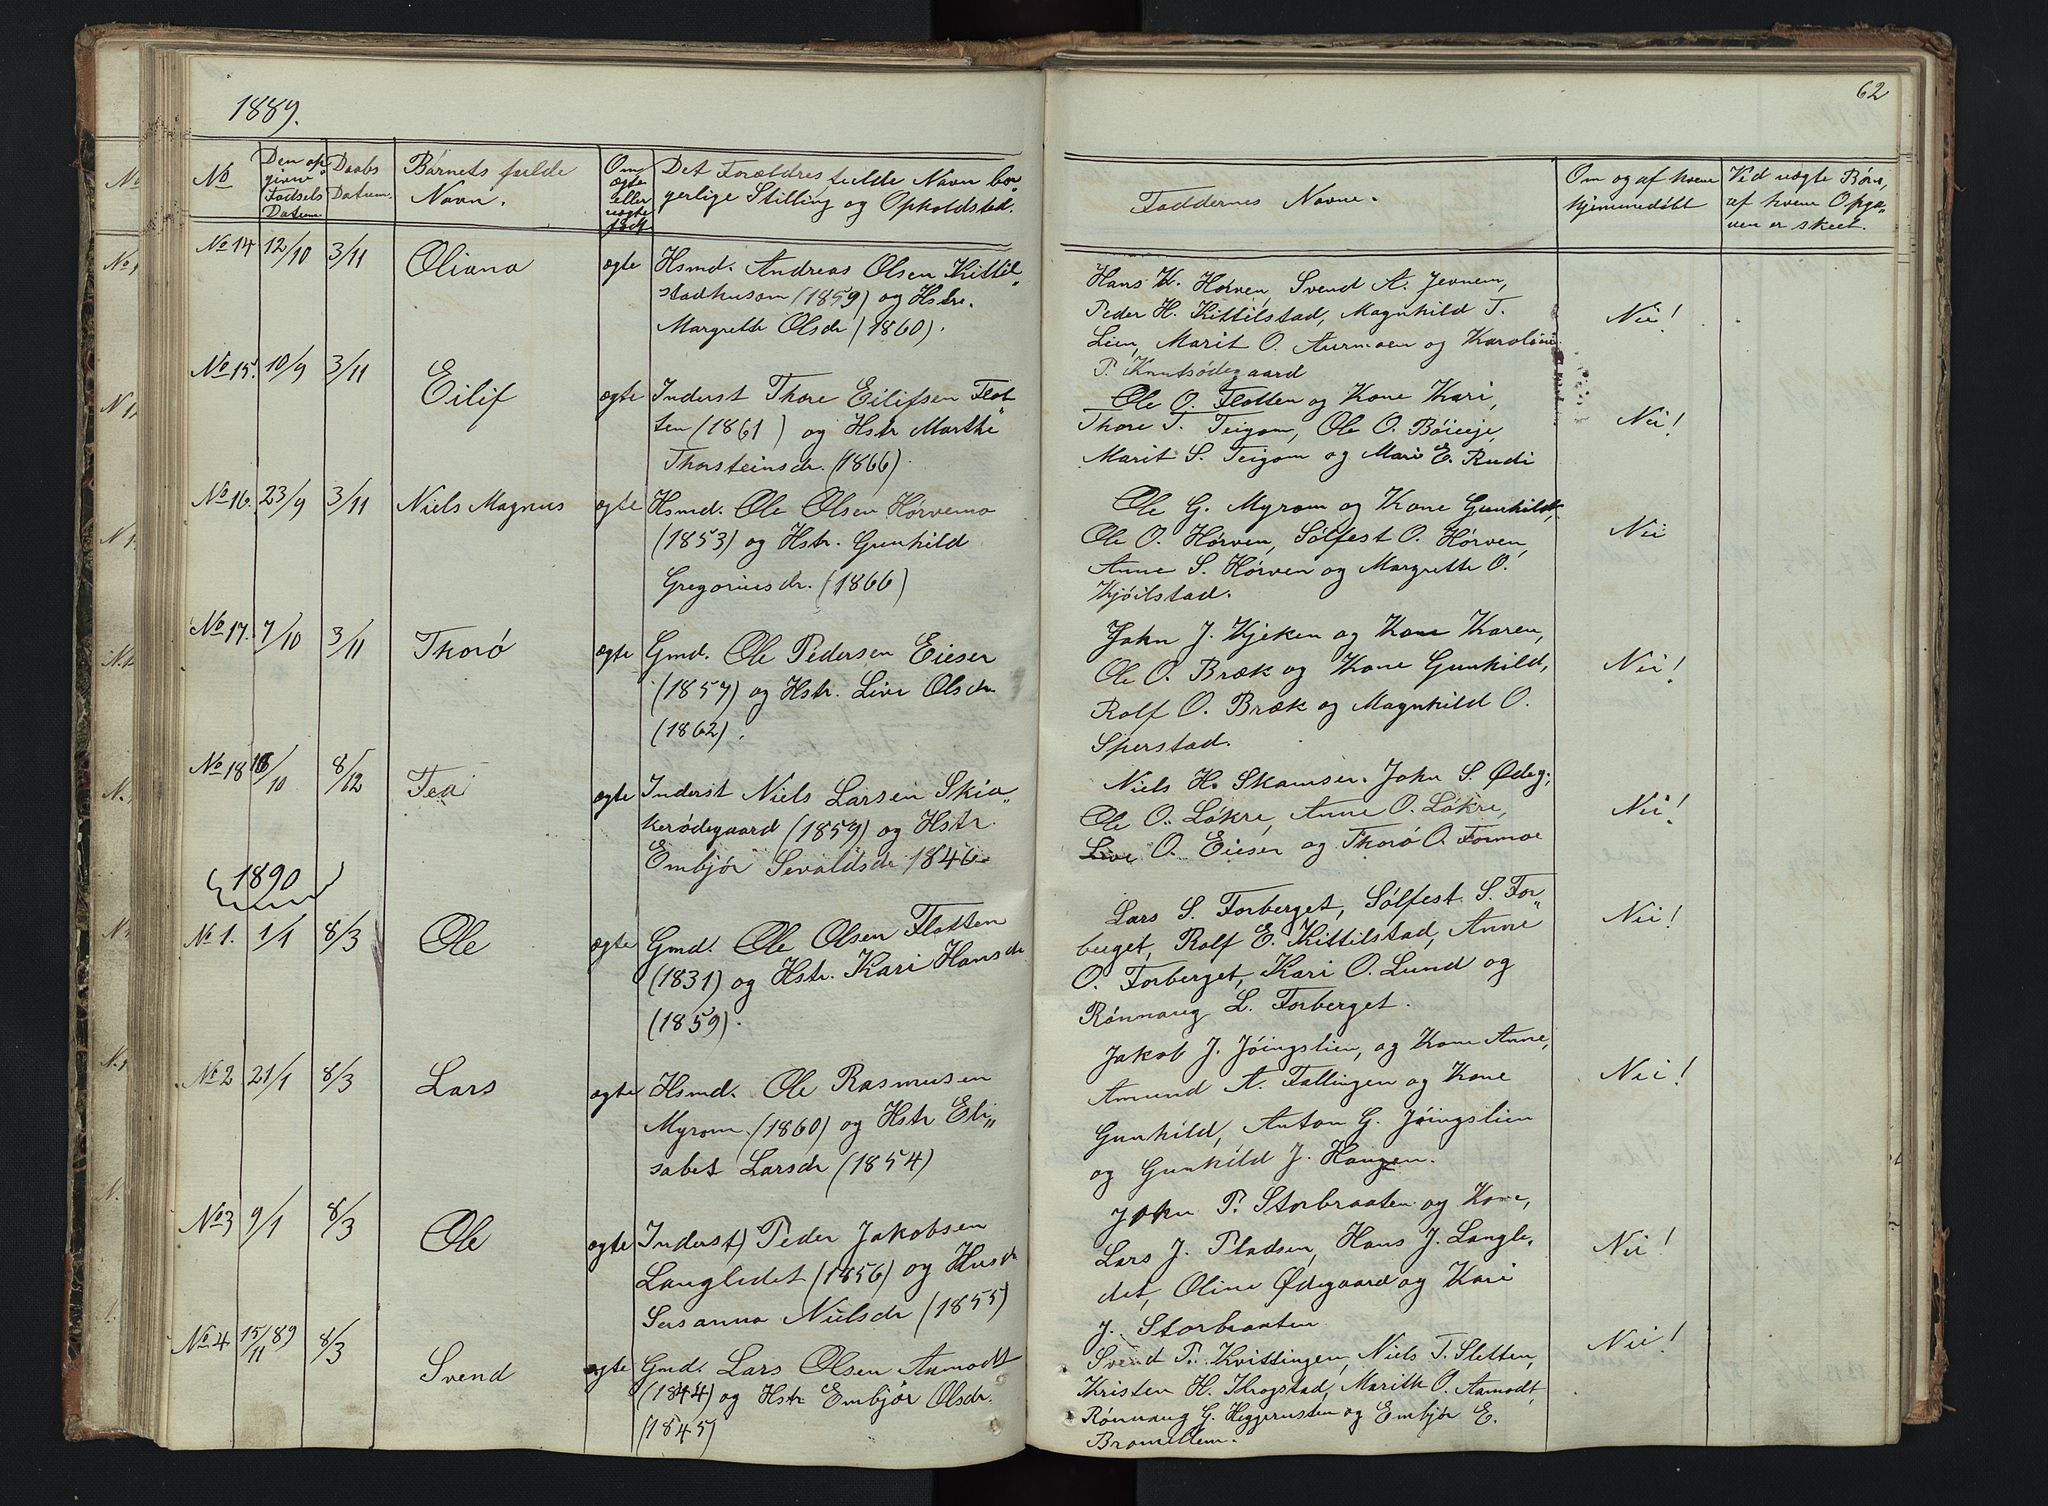 1889.
No
Den op
givne
Fødsels
Datum.
Daabs
Datum.
Barnets fulde
Navn.
Om
ægte
eller
uægte
født
Det Forældres fulde Navn bor„
gerlige Stilling og Opholdsted.
No 14 12/10 3/11 Oliana ægte Hsmd. Andreas Olsen Kittil„
stadhusom (1859) og Hstr.
Margrethe Olsdr (1860).
No 15. 10/9 3/11 Eilif ægte Inderst Thore Eilifsen Flot
ten (1861) og Hstr Marthe
Thorsteinsdr. (1866)
No 16. 23/9 3/11 Niels Magnus ægte Hsmd. Ole Olsen Hørvemo
(1853) og Hstr. Gunhild
Gregoriusdr. (1866)
No 17. 7/10 3/11 Thorø ægte Gmd. Ole Pedersen Eieser
(1857) og Hstr. Live Olsdr.
(1862).
No 18 /10 8/12 Tea ægte Inderst Niels Larsen Skia„
kerødegaard (1859) og Hstr.
Embjør Sevaldsdr 1846
1890
No 1. 1/1 8/3 Ole ægte Gmd. Ole Olsen Flatten
(1831) og Hstr. Kari Hansdr
(1859).
No 2 21/1 8/3 Lars ægte Hsmd. Ole Rasmusen
Myrom. (1860) og Hstr Eli„
sabet Larsdr (1854)
No 3 9/1 8/3 Ole ægte Inderst) Peder Jakobsen
Langledet (1856) og Husdr
Susanna Nielsdr (1855)
No 4 15/11 89 8/3 Svend ægte Gmd. Lars Olsen Aamodt
(1844) og Hstr Embjør Olsdr.
(1845)
62
Faddernes Navne.
Om og af hvem
hjemmedøbt
Ved uægte Børn,
af hvem Opga„
ven er skeet.
Hans K. Hørven, Svend A. Jevnem,
Peder H. Kittilstad, Magnhild T. Nei!
Lien, Marit O. Aurmoen og Karoline
P. Knutsødegaard
Ole O. Flotten og Kone Kari,
Thore T. Teigom, Ole O. Bøieeje, Nei!
Marit S. Teigom og Mari E. Rudi
Ole G. Myrom og Kone Gunhild,
Ole O. Hørven, Sølfest O. Hørven, Nei
Anne S. Hørven og Margrethe O.
Kjøilstad.
John J. Kjeken og Kone Karen,
Ole O. Bræk og Kone Gunhild, Nei!
Rolf O. Bræk og Magnhild O.
Sperstad.
Niels H. Skamser. John S. Ødeg.,
Ole O. Løkre, Anne O. Løkre, Nei!
Live O. Eieser og Thorø O. Formoe
Lars S. Forberget, Sølfest S. For„
berget, Rolf E. Kittilstad, Anne Nei!
O. Forberget, Kari O. Lund og
Rønnaug L. Forberget.
Jakob J. Jøingslien, og Kone Anne,
Amund A. Fallingen og Kone Nei!
Gunhild, Anton G. Jøingslien
og Gunhild J. Haugen.
John P. Storbraaten og Kone,
Lars J. Pladsen, Hans J. Langle„ Nei!
det, Oline Ødegaard og Kari
J. Storbraaten
Svend P. Kvittingen, Niels T. Sletten, Nei!
Kristen H. Krogstad, Marith O. Aamodt,
Rønnaug G. Heggerusten og Embjør E.